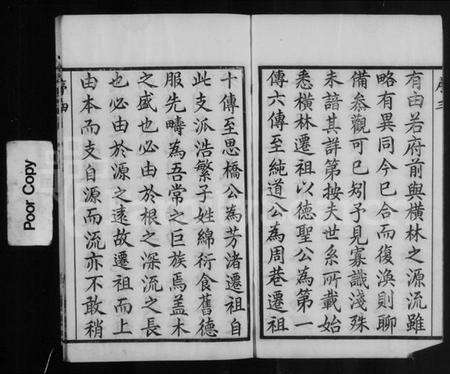 有由若府前與橫林之源流雖
略有異同今已合而復渙則聊
備叅觀可已矧予見寡識淺殊
未諳其詳第按夫世系所載始
悉橫林遷祖以德聖公為第一
傳六傳至純道公為周巷遷祖
十傳至思橋公為芳渚遷祖自
此支派浩繁子姓綿衍食舊德
服先疇為吾常之巨族焉蓋木
之盛也必由於根之深流之長
也必由於源之遠故遷祖而上
由本而支自源而流亦不敢稍
Poor Copy